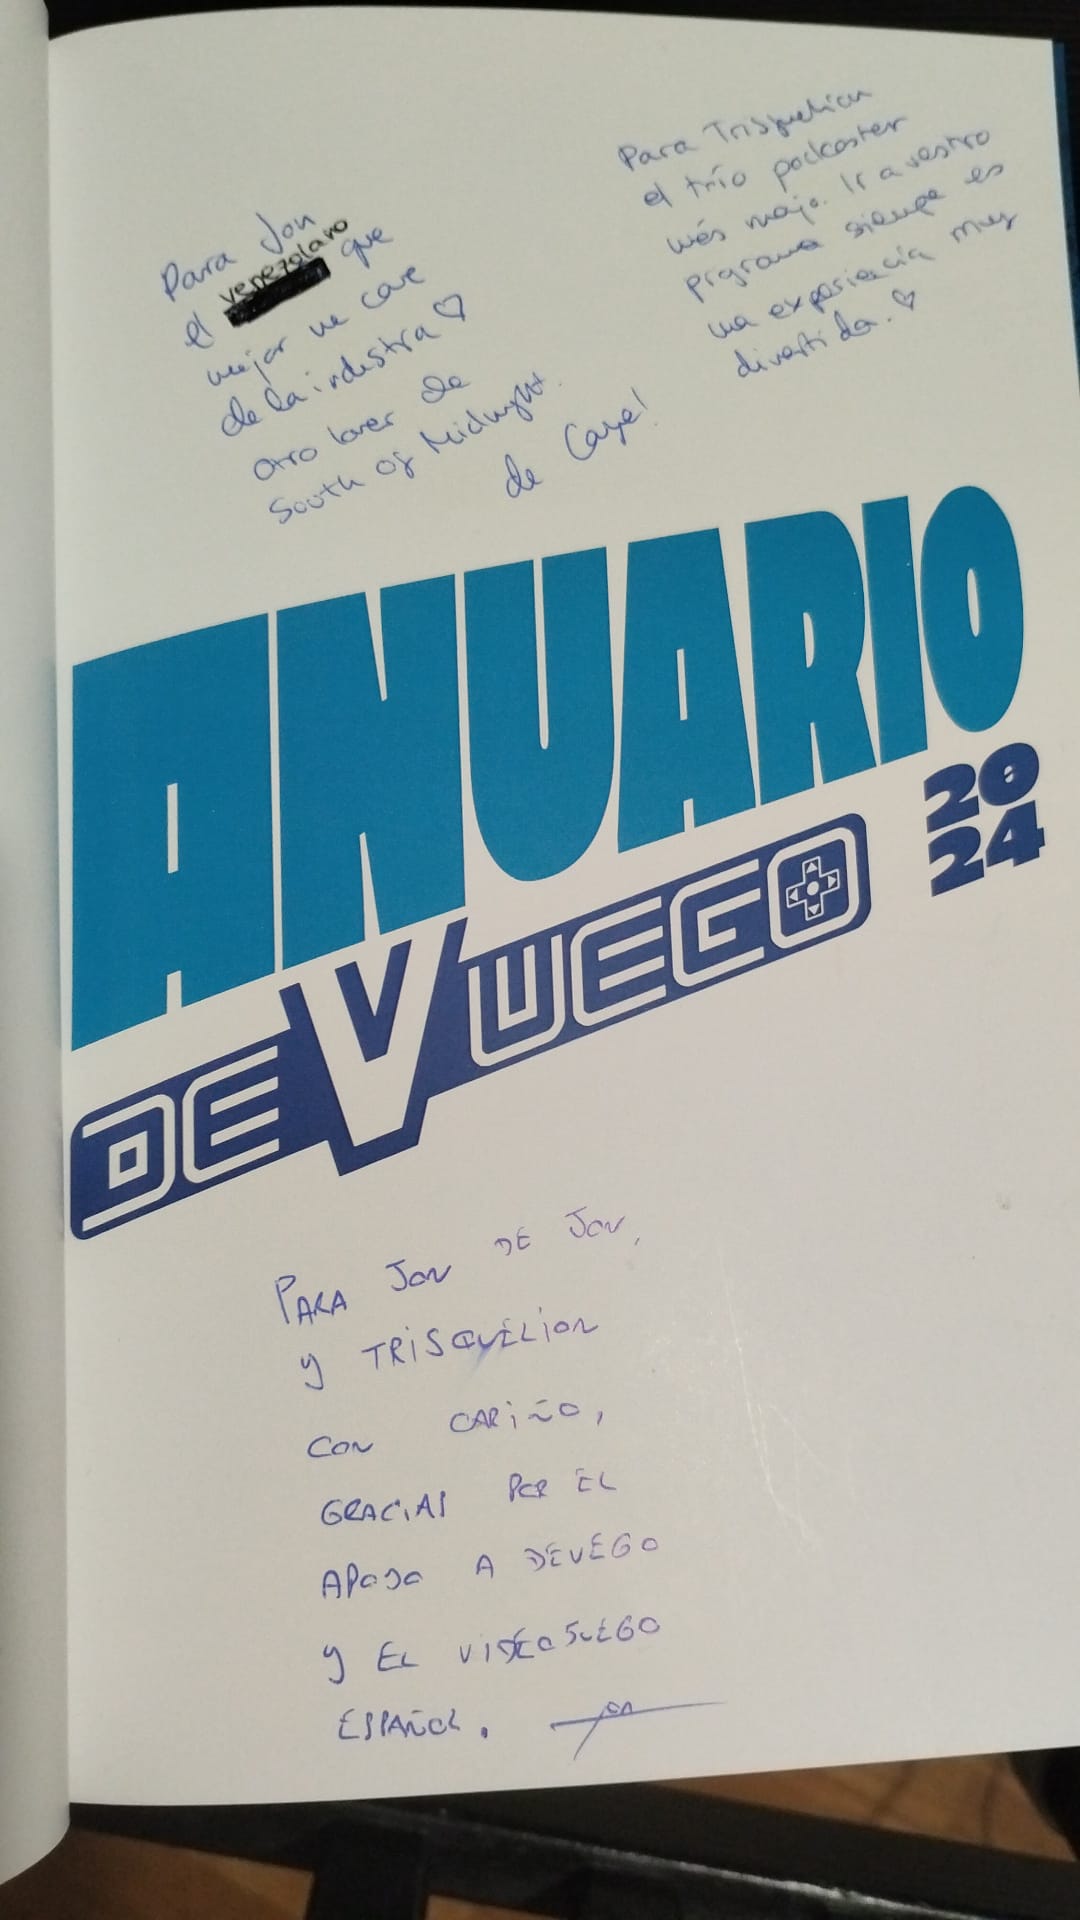 Para Jon
el venezolano que
mejor me cae
de la industra ♡
otro lover de
South of Midnight.
de Caye!
Para Trisquelion
el trío podcaster
más majo. Ir a vestro
prgrama siempe es
una experiecia muy
divertida. ♡
ANUARIO
DEVUEGO
2024
PARA JON DE JON,
y TRISQUELION
CON CARIÑO,
GRACIAS POR EL
APOYO A DEVUEGO
y EL VIDEOJUEGO
ESPAÑOL. Jon